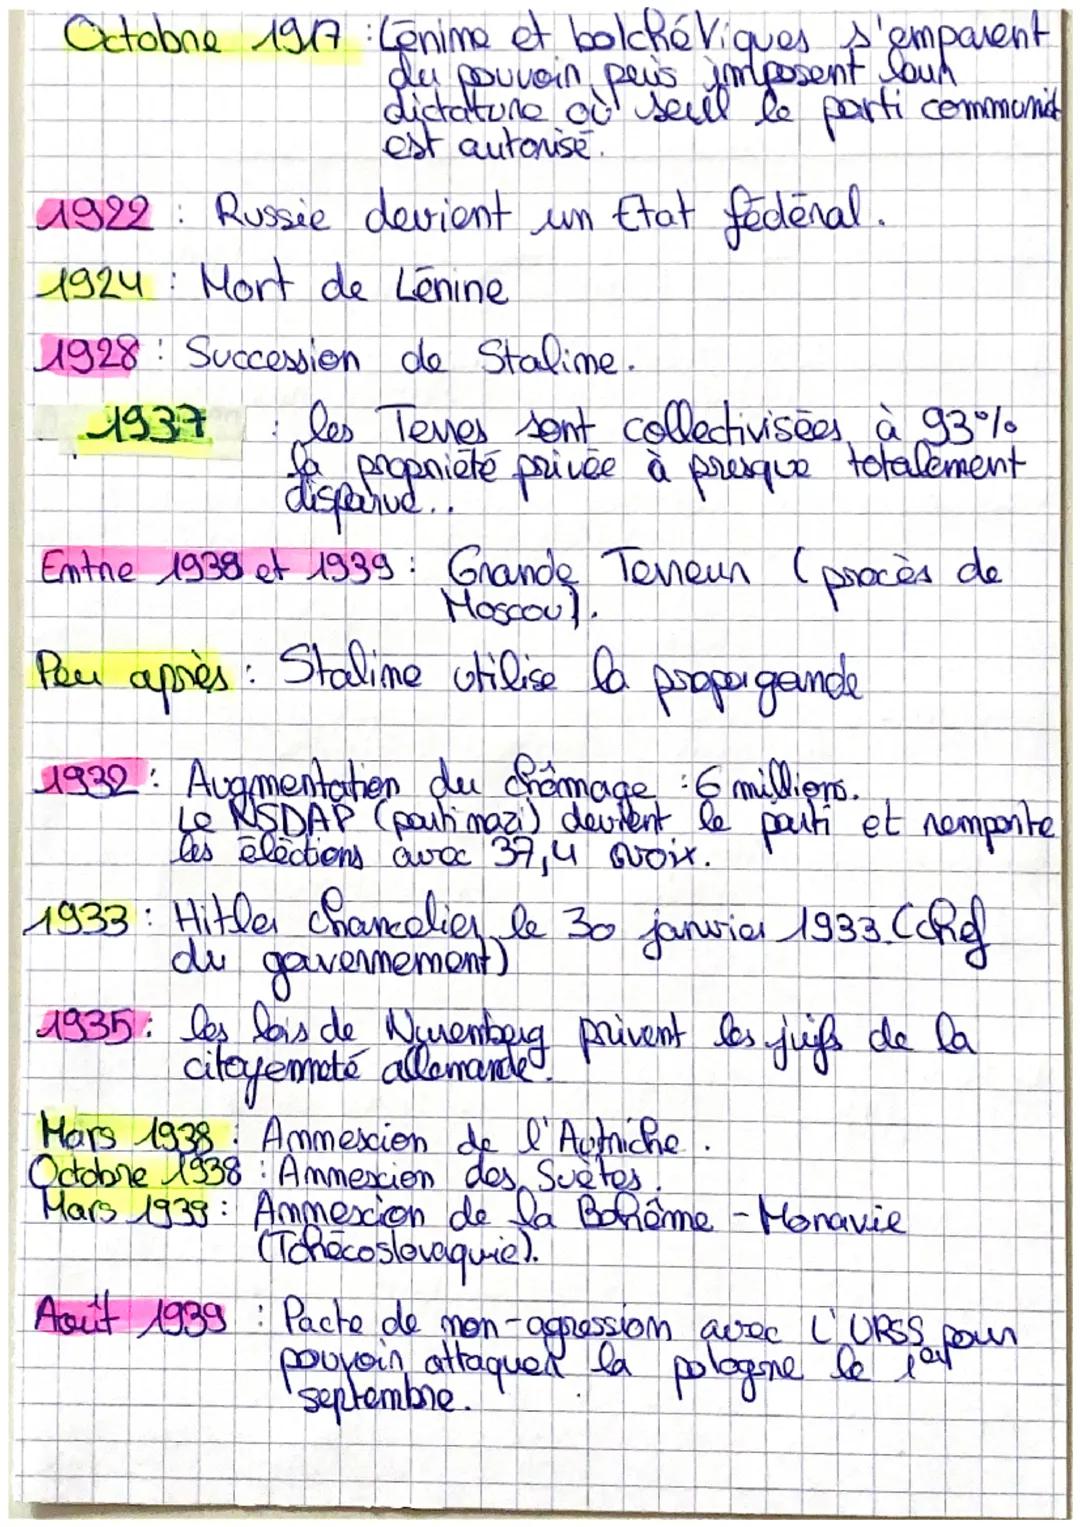 Octobre 1917 : Lénine et bolchéviques s'emparent
du pouvoir puis imposent leur
dictature où seul le parti communist
est autorisé.
1922 : Russie devient un Etat fédéral.
1924 : Mort de Lénine
1928 : Succession de Staline.
1937 : les Terres sont collectivisées à 93%
la propriété privée à presque totalement
disparue..
Entre 1938 et 1939 : Grande Terreur (procès de
Moscou).
Peu après : Staline utilise la propagande
1932 : Augmentation du chômage : 6 millions.
Le NSDAP (parti nazi) devient le parti et remporte
les élections avec 37,4 voix.
1933 : Hitler chancelier le 30 janvier 1933 (chef
du gouvernement)
1935 : les lois de Nuremberg privent les juifs de la
citoyenneté allemande.
Mars 1938 : Annexion de l'Autriche.
Octobre 1938 : Annexion des Suètes.
Mars 1939 : Annexion de la Bohême - Moravie
(Tchécoslovaquie).
Août 1939 : Pacte de non-agression avec L'URSS pour
pouvoir attaquer la pologne le 1er
septembre.